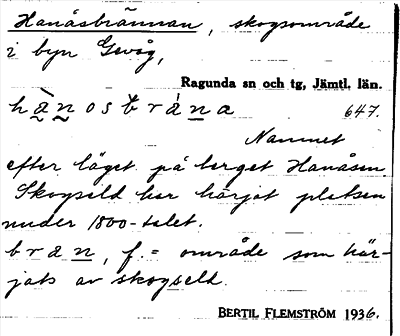 Hanåsbrännan, skogsområde
i byn Gevåg,
Ragunda sn och tg, Jämtl. län.
hànosbrána 647.
Namnet
efter läget på berget Hanåsen
Skogseld har härjat platsen
under 1800-talet.
bran, f. = område som här-
jats av skogseld.
BERTIL FLEMSTRÖM 1936.